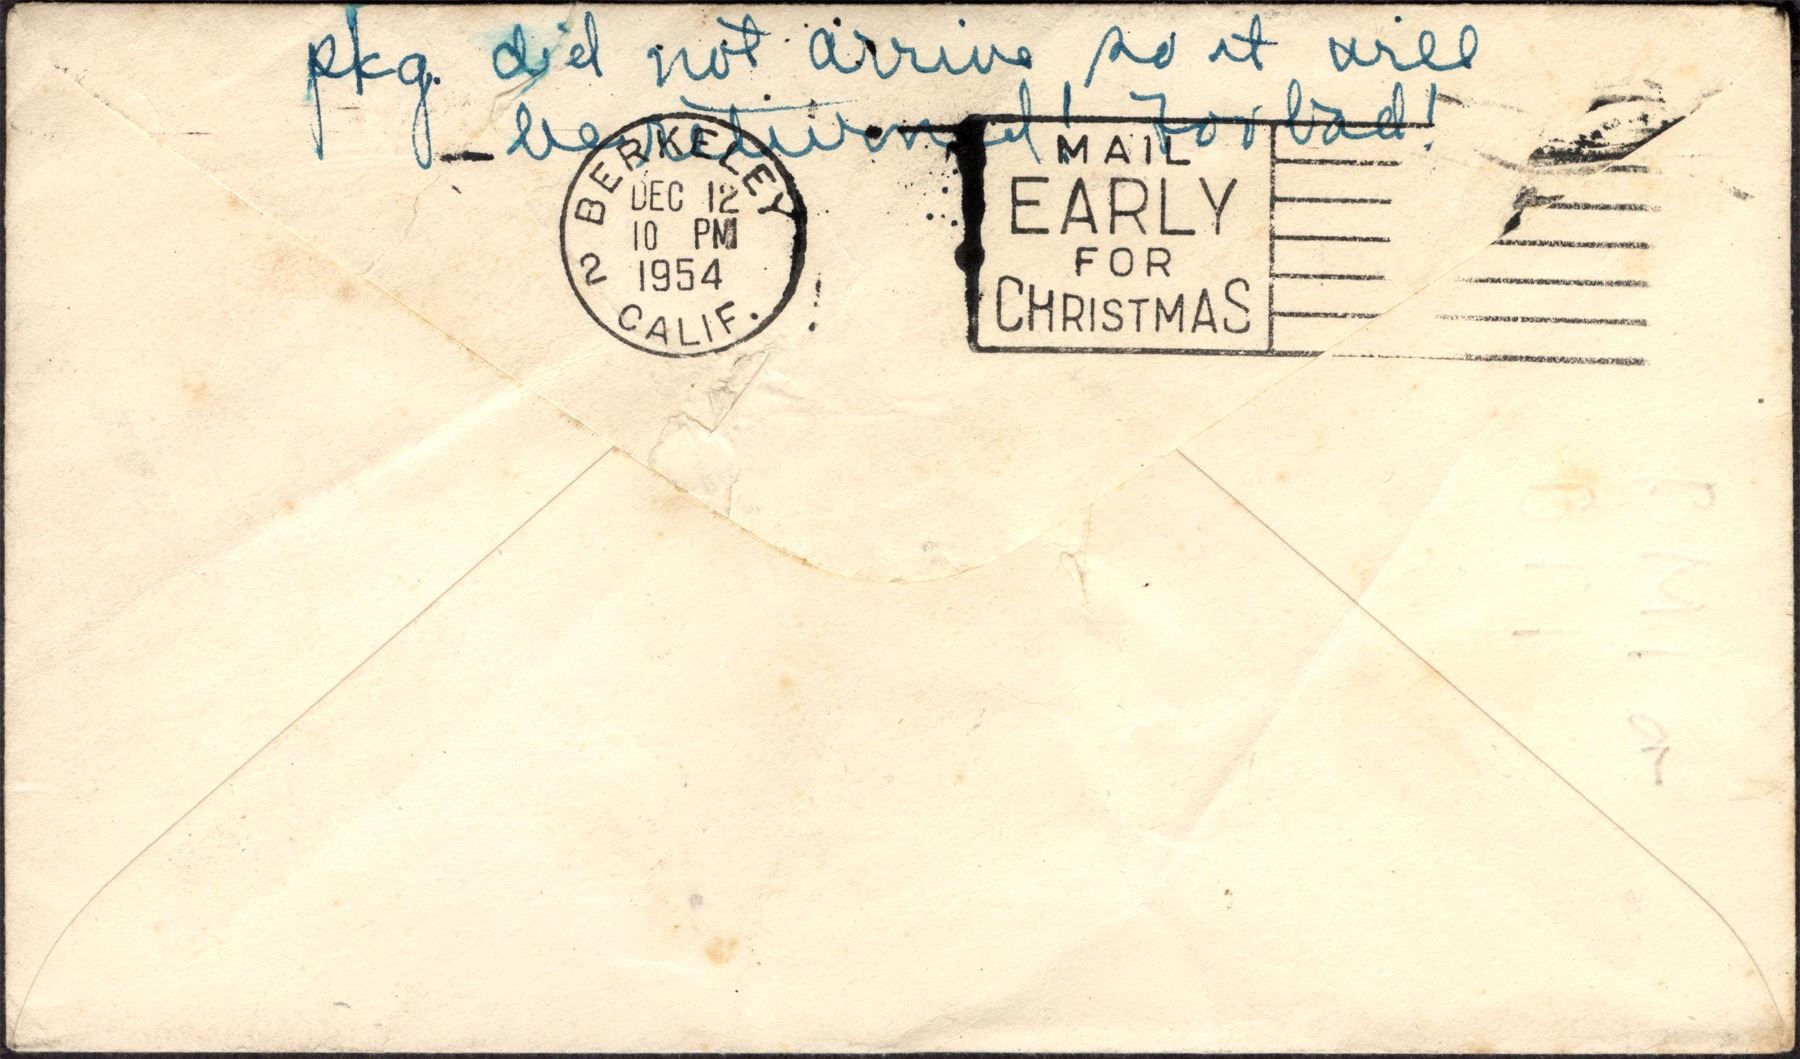 pkg. did not arrive so it will
be returned! Too bad!
BERKELEY
2
DEC 12
10 PM
1954
CALIF.
MAIL
EARLY
FOR
CHRISTMAS